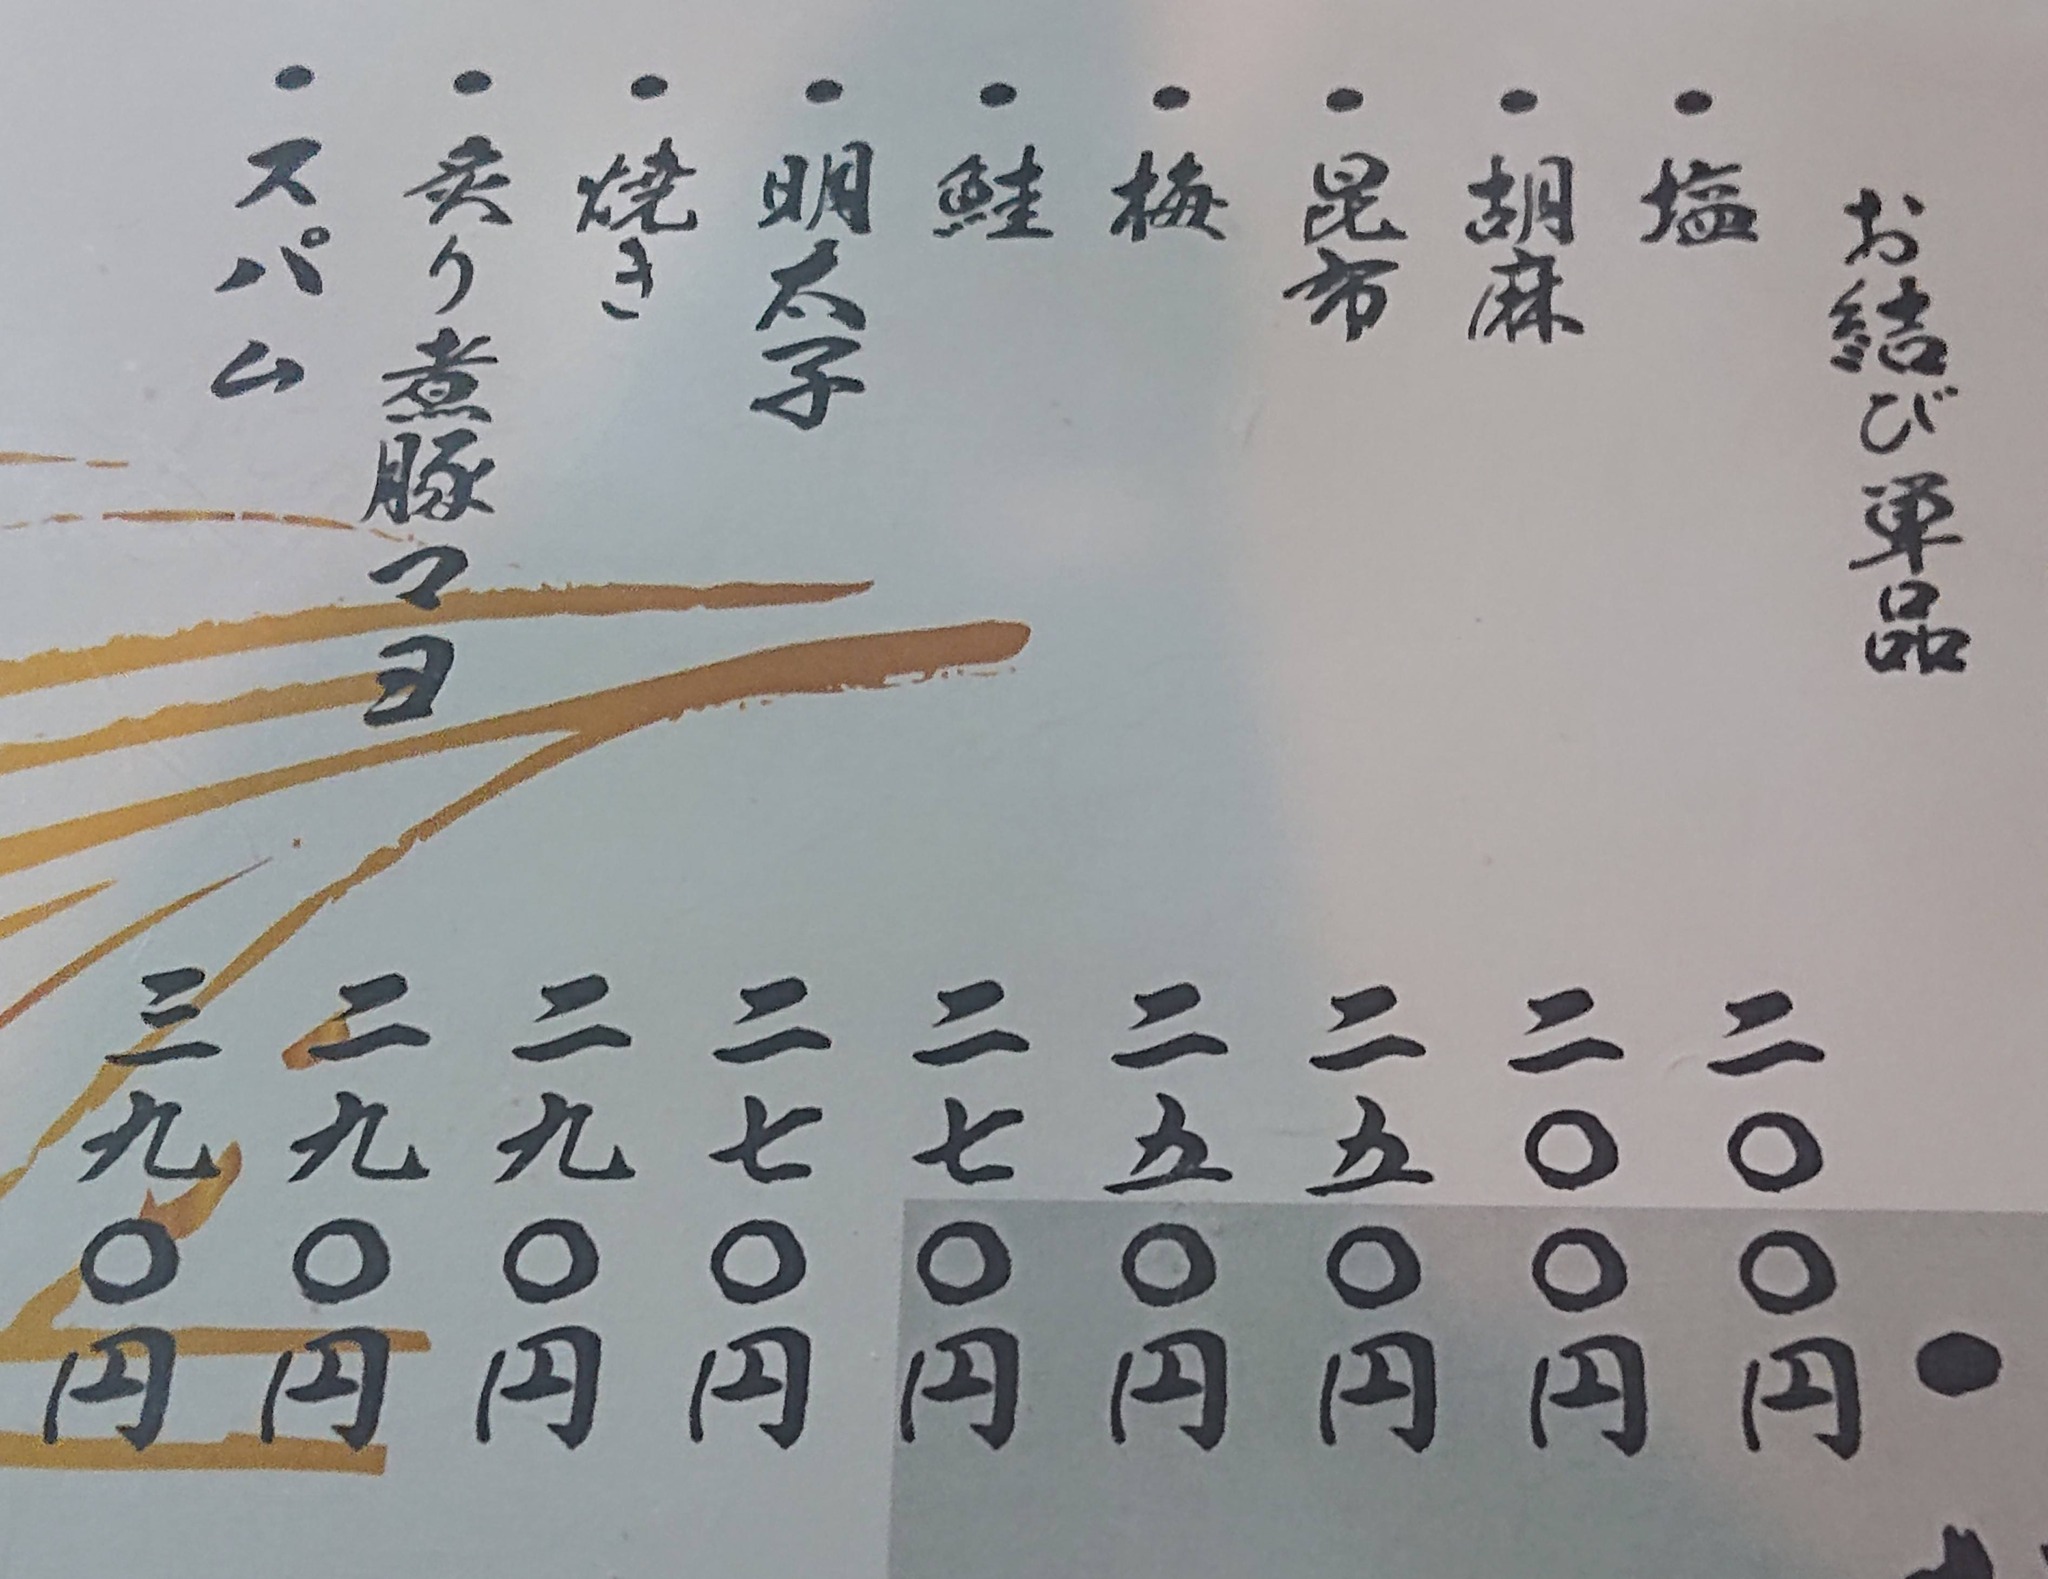 お結び単品
・塩 二〇〇円
・胡麻 二〇〇円
・昆布 二五〇円
・梅 二五〇円
・鮭 二七〇円
・明太子 二七〇円
・焼き 二九〇円
・炙り煮豚マヨ 二九〇円
・スパム 三九〇円